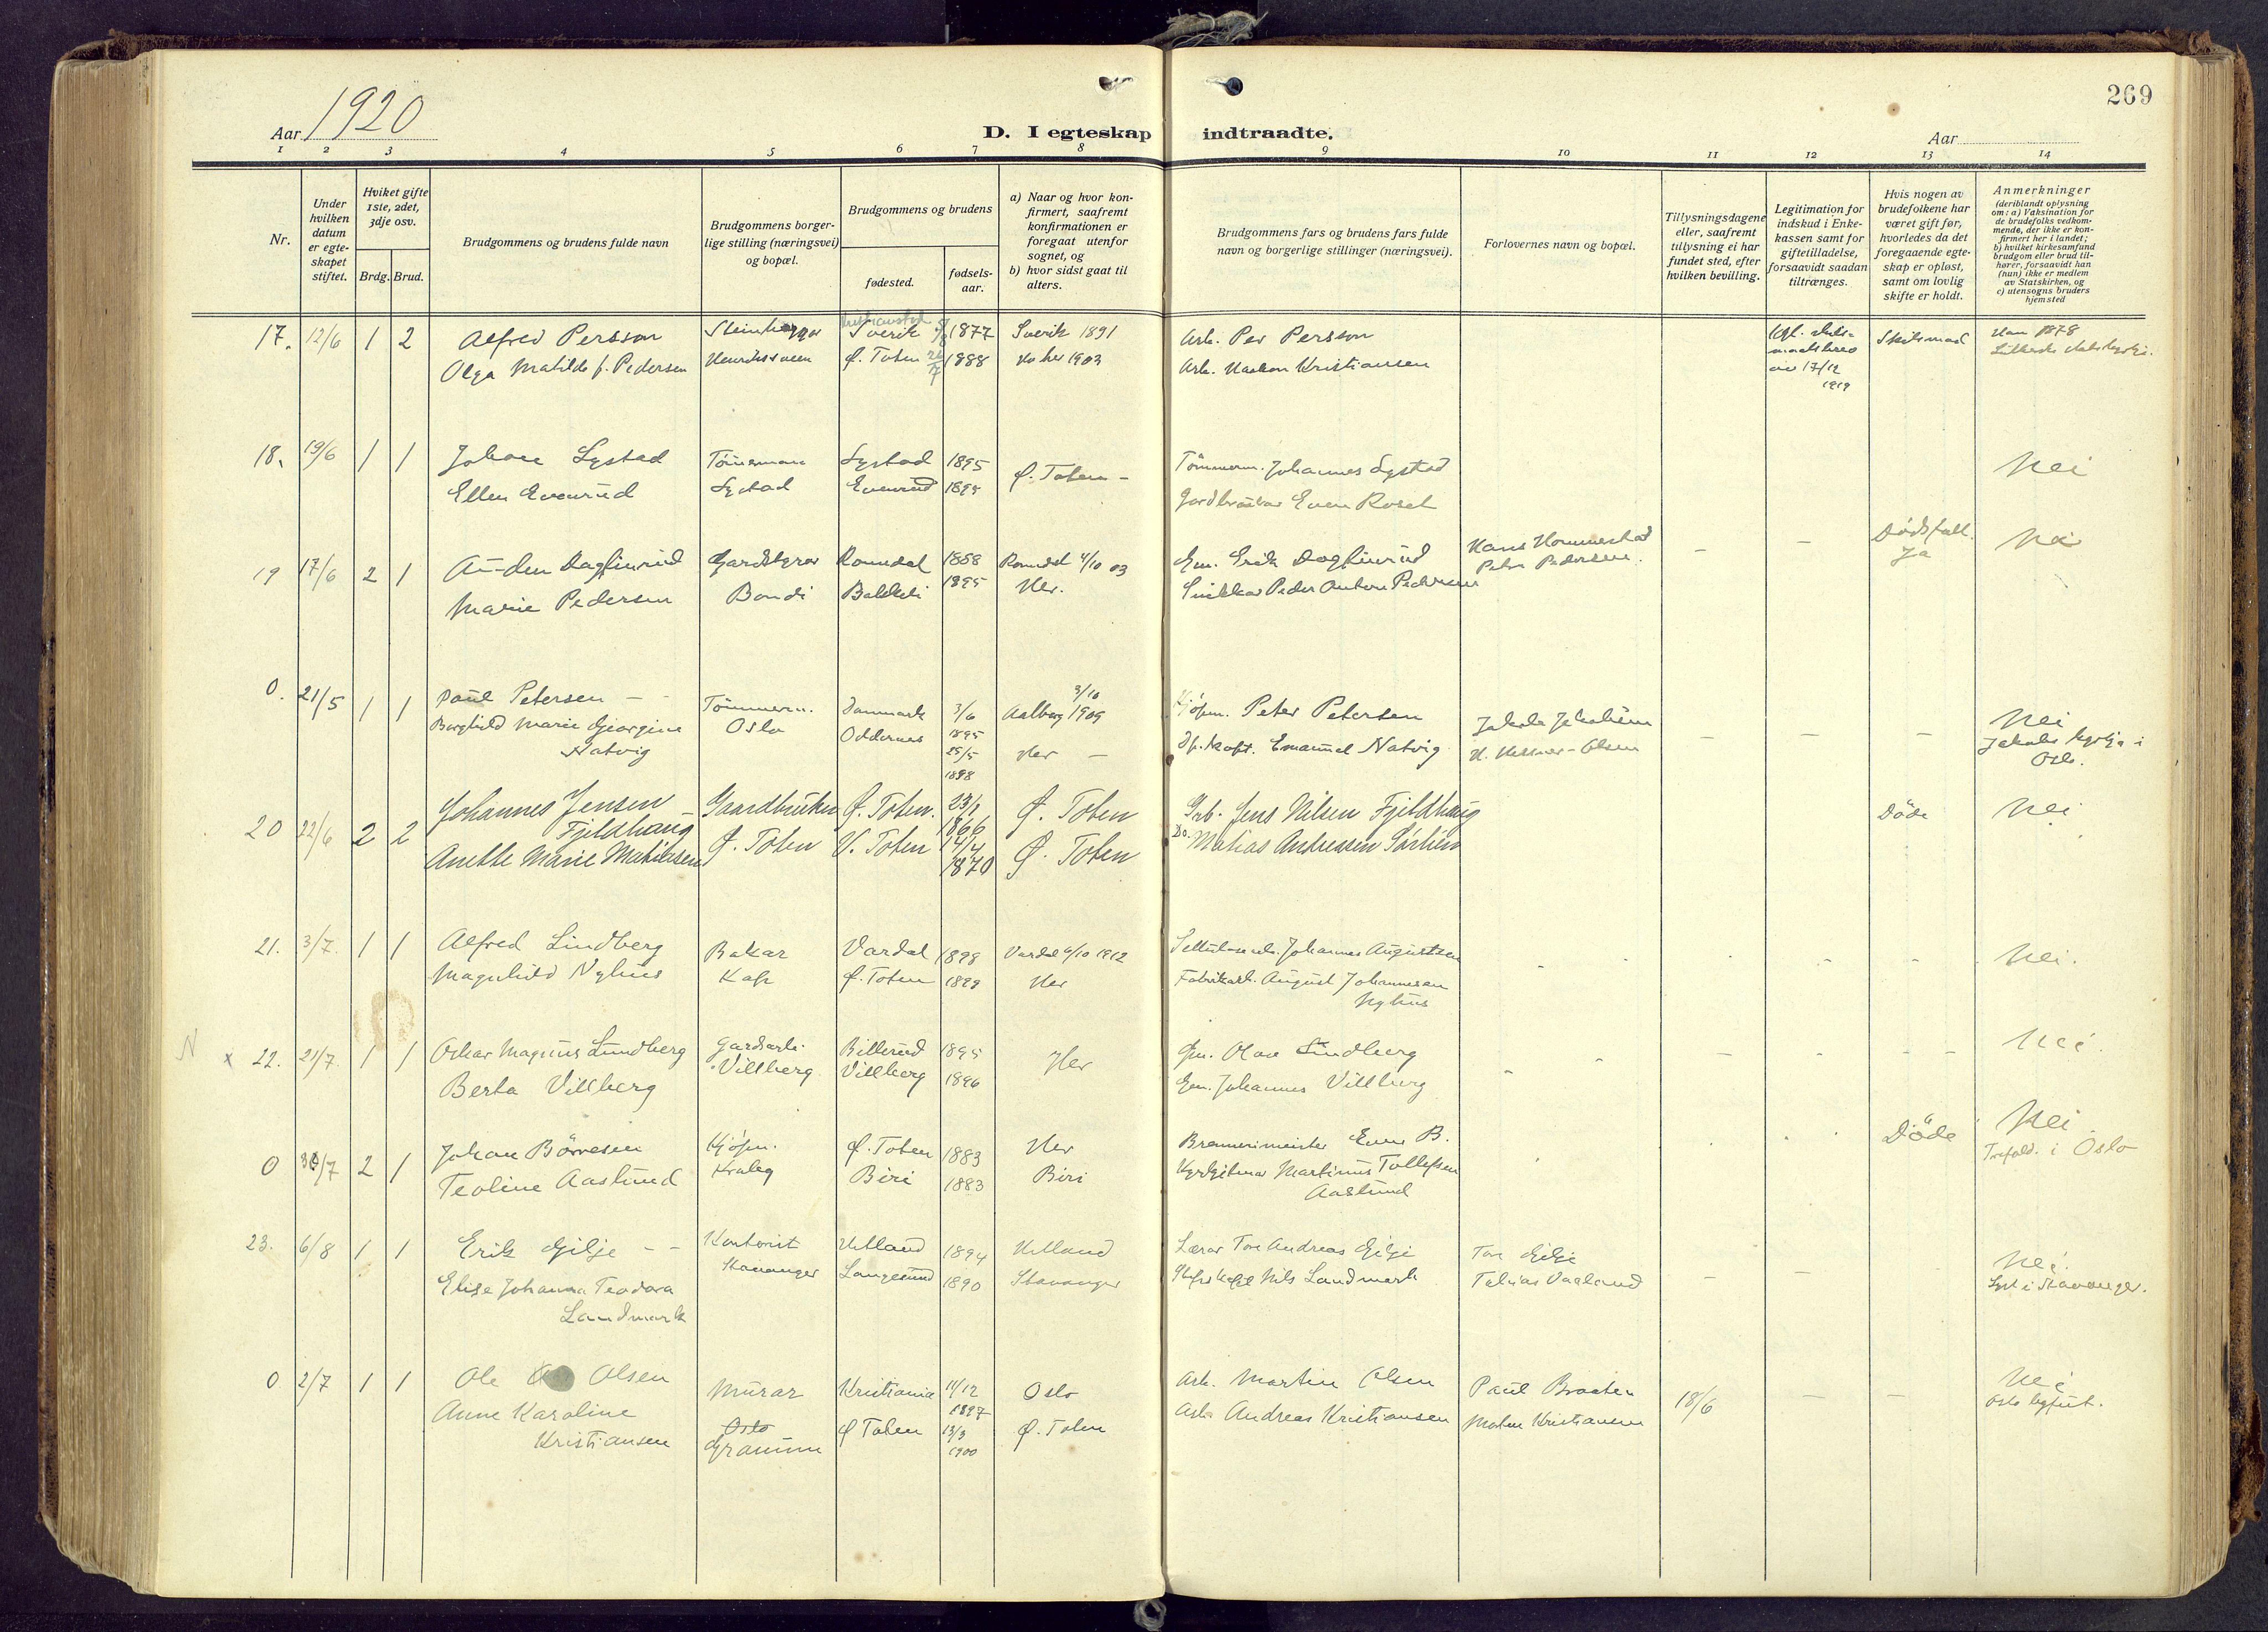 269
Aar 1920
D. I egteskap indtraadte.
Aar
1 2 3 4 5 6 7 8 9 10 11 12 13 14
Nr.
Under hvilken datum er egteskapet stiftet.
Hviket gifte 1ste, 2det, 3dje osv.
Brdg. Brud.
Brudgommens og brudens fulde navn
Brudgommens borgerlige stilling (næringsvei) og bopæl.
Brudgommens og brudens
fødested.
fødselsaar.
a) Naar og hvor konfirmert, saafremt konfirmationen er foregaat utenfor sognet, og
b) hvor sidst gaat til alters.
Brudgommens fars og brudens fars fulde navn og borgerlige stillinger (næringsvei).
Forlovernes navn og bopæl.
Tillysningsdagene eller, saafremt tillysning ei har fundet sted, efter hvilken bevilling.
Legitimation for indskud i Enkekassen samt for giftetilladelse, forsaavidt saadan tiltrænges.
Hvis nogen av brudefolkene har været gift før, hvorledes da det foregaaende egteskap er opløst, samt om lovlig skifte er holdt.
Anmerkninger (deriblandt oplysning om: a) Vaksination for de brudefolks vedkommende, der ikke er konfirmert her i landet; b) hvilket kirkesamfund brudgom eller brud tilhører, forsaavidt han (hun) ikke er medlem av Statskirken, og c) utensogns bruders hjemsted
17. 12/6 1 2 Alfred Persson Sverik 1877 Sverik 1891 Arb. Per Persson
Olga Matilde f. Pedersen Henrikssveen Ø. Toten 1888 her 1903 Arb. Haakon Kristiansen
av 17/12 1919
18. 19/6 1 1 Johan Lystad Lystad 1895 Ø. Toten - Tömmerm. Johannes Lystad Nei
Ellen Evenrud Lystad Evenrud 1895 Gardbrukar Even Roset
19 17/6 2 1 Auden Dagfinrud Romedal 1858 Romedal 4/10 03 Gm. Erik Dagfinrud Hans Hommerstad - - Dödsfall. Ja Nei
Marie Pedersen Bondi Balkeli 1895 Her. Peder Anton Pedersen Peder Pedersen.
0. 21/5 1 1 Paul Petersen - - Tömmerm. Danmark 3/6 1895 Aalborg 3/10 1909 Kjöpm. Peter Petersen Nei
Borghild Marie Georgine Natvig Oslo Oddernes 25/5 1898 Her - Emanuel Natvig Jakobs kyrkja i Oslo.
20 22/6 2 2 Johannes Jensen Fjeldhaug Gaardbruker Ø. Toten. 23/1 1866 Ø. Toten Grb. Jens Nilsen Fjeldhaug Döde Nei
Anette Marie Mathiasen Ø. Toten V. Toten 14/4 1870 Ø. Toten Do. Matias Andreasen Sörlien
21. 3/7 1 1 Alfred Lindberg Bakar Vardal 1898 Vardal 6/10 1912 Johannes Augustsen Nei.
Magnhild Nyhus Kap Ø. Toten 1899 Her Fabrikarb. August Johannesen Nyhus
N x 22. 21/7 1 1 Oskar Magnus Lundberg Gardarb. Billerud 1895 Her Gm. Olav Lindberg Nei.
Berta Villberg Villberg Villberg 1896 Gm. Johannes Villberg
0 30/7 2 1 Johan Börresen Kjöpm. Ø. Toten 1883 Her Brennerimeister Even B. Döde Nei.
Teoline Aaslund Kraby Biri 1883 Biri Martinus Tollefsen Aaslund Trefold. i Oslo
23. 6/8 1 1 Erik Gilje - - Kontorist Hetland 1894 Hetland Lærar Tore Andreas Gilje Tore Gilje - - Nei.
Elise Johanna Teodora Landmark Stavanger Langesund 1890 Stavanger Nils Landmark Tobias Vaaland Lyst i Stavanger.
0 2/7 1 1 Ole Olsen Murar Kristiania 11/12 1897 Oslo Arb. Martin Olsen Paul Braaten 18/6 - - Nei
Anne Karoline Kristiansen Oslo Gramm Ø Toten 13/3 1900 Ø. Toten Arb. Andreas Kristiansen Kristiansen